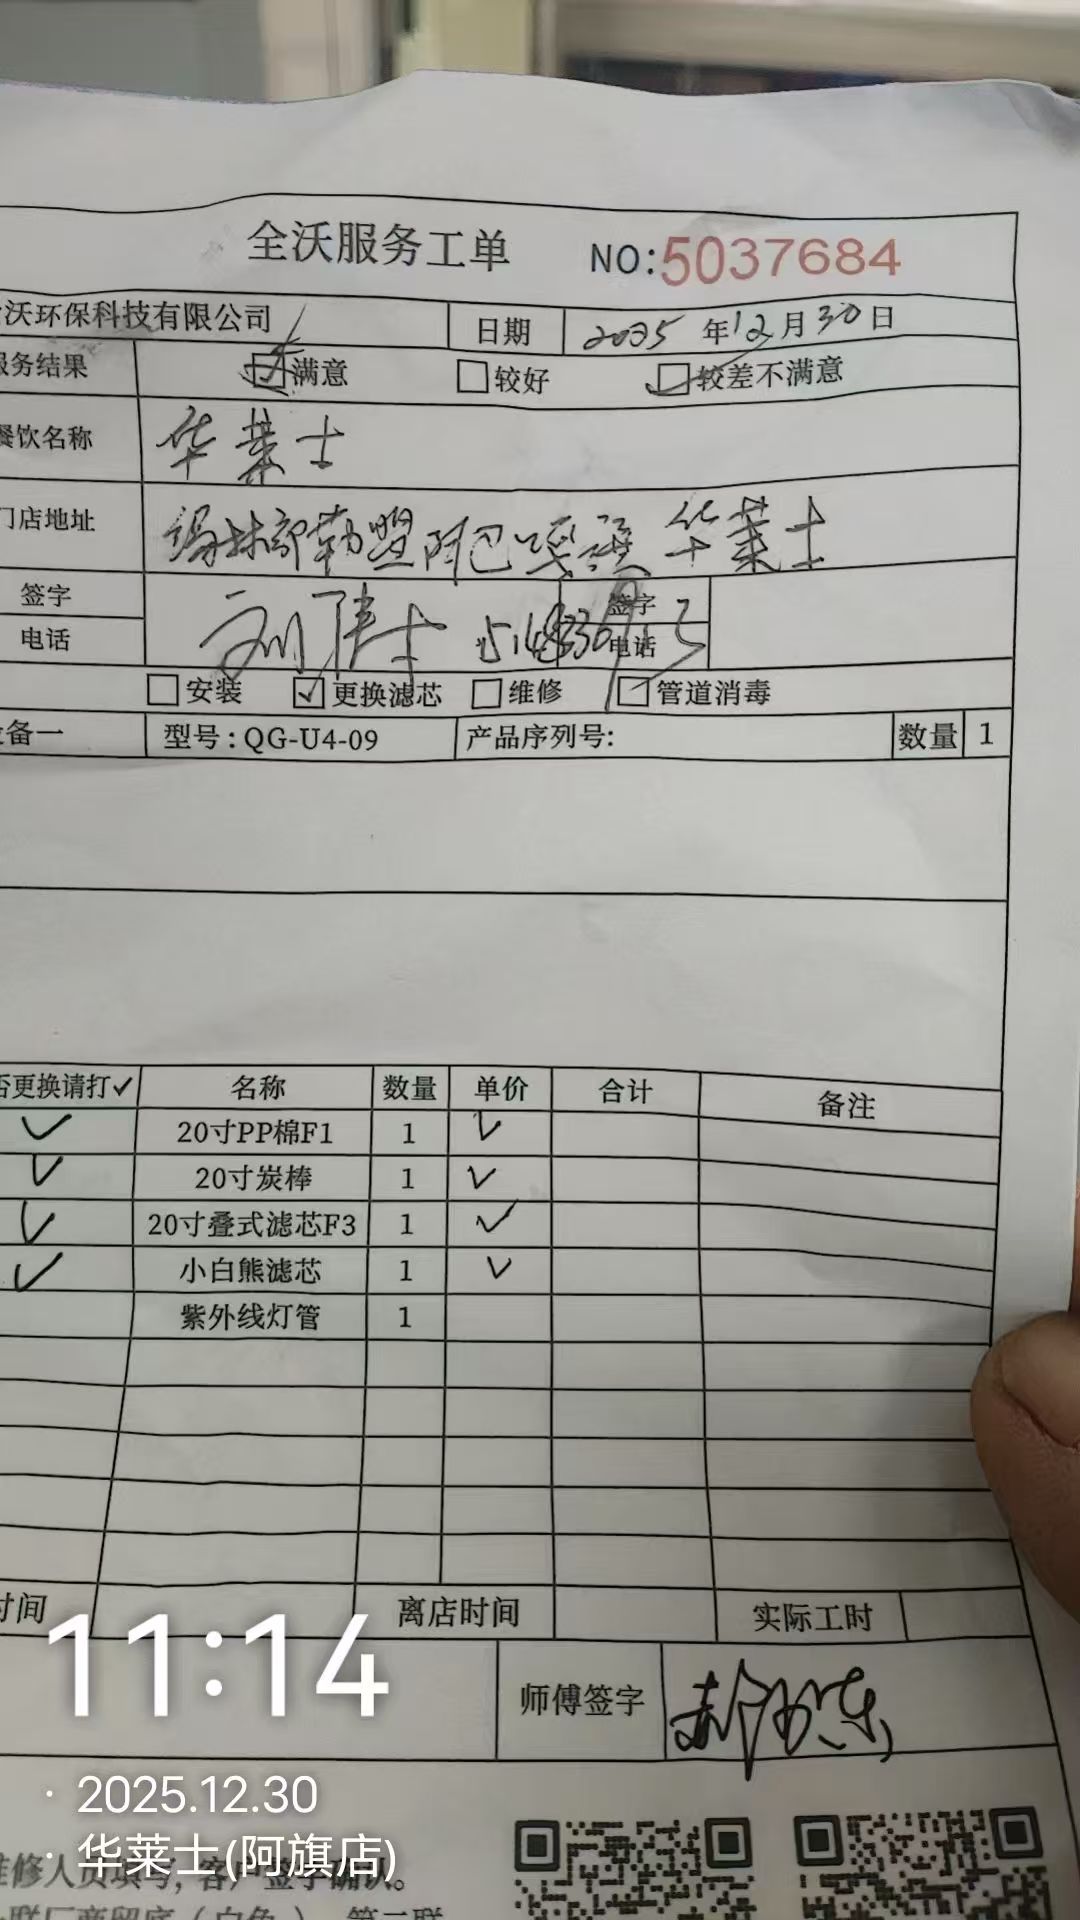 全沃服务工单 NO:5037684
沃环保科技有限公司 日期 2025年12月30日
服务结果 满意 较好 较差不满意
餐饮名称 华莱士
门店地址 锡林郭勒盟阿巴嘎旗 华莱士
签字 签字
电话 电话
安装 ✓更换滤芯 维修 管道消毒
设备一 型号:QG-U4-09 产品序列号: 数量 1
否更换请打✓ 名称 数量 单价 合计 备注
✓ 20寸PP棉F1 1 ✓
✓ 20寸炭棒 1 ✓
✓ 20寸叠式滤芯F3 1 ✓
✓ 小白熊滤芯 1 ✓
紫外线灯管 1
时间 离店时间 实际工时
11:14
师傅签字
2025.12.30
华莱士(阿旗店)
维修人员填写, 客户签字确认。
联厂商留底(白色)、第二联